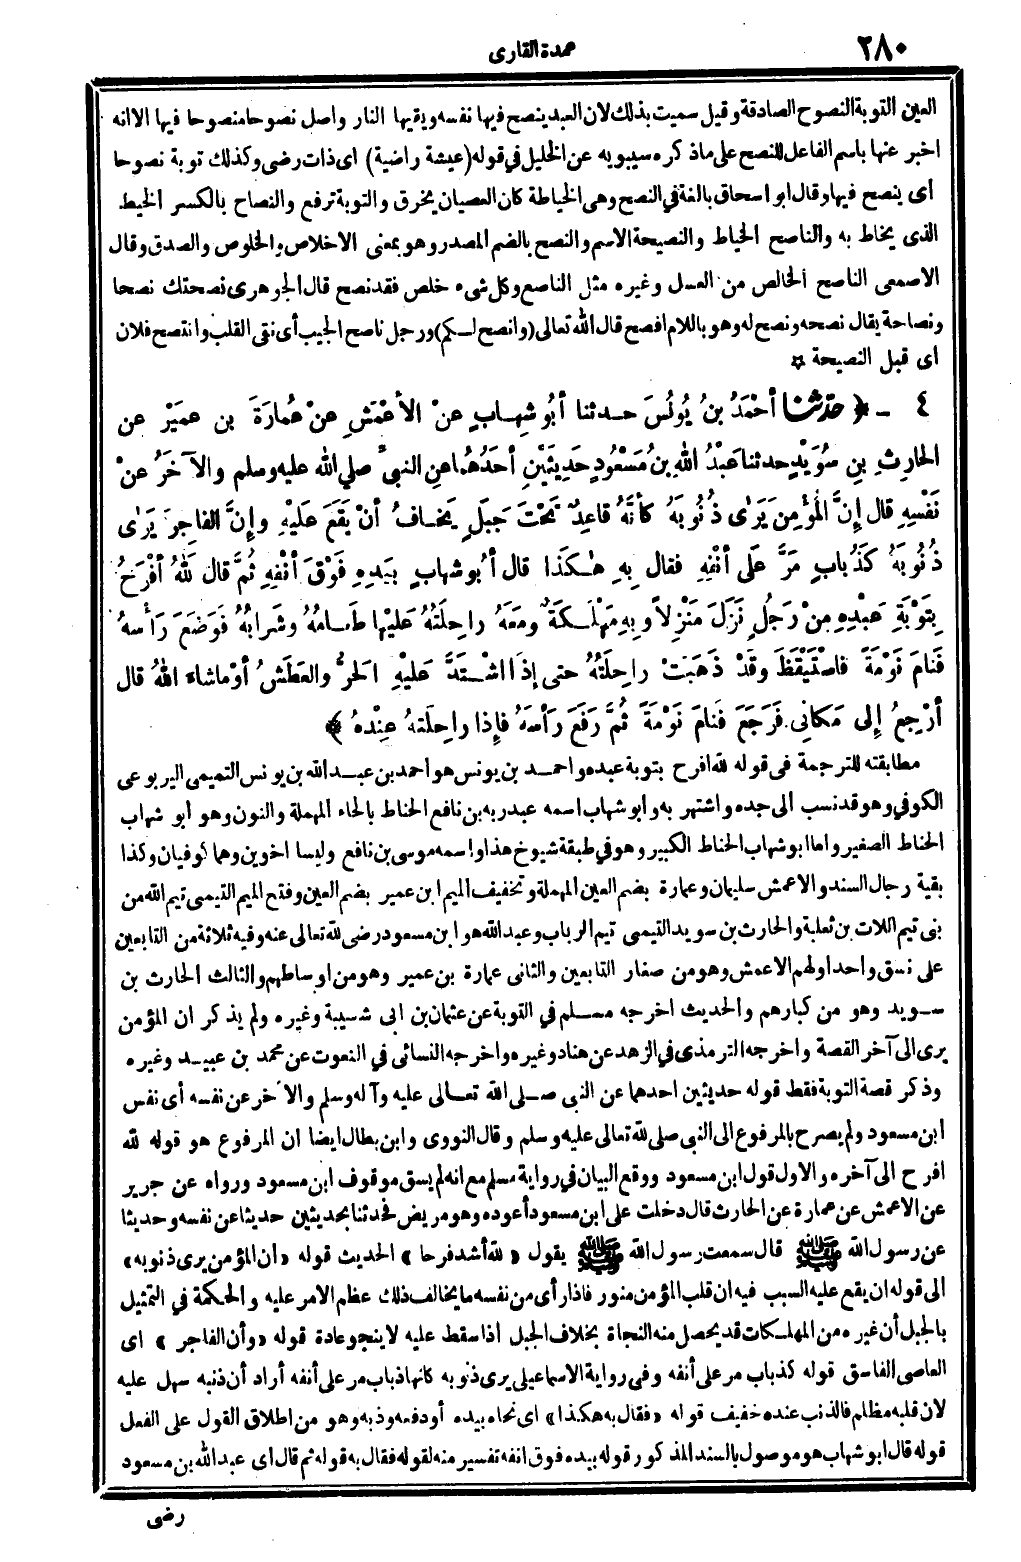 ٢٨٠
عمدة القارى
العين التوبة النصوح الصادقة وقيل سميت بذلك لان العبد ينصح فيها نفسه ويقيها النار واصل نصوحا منصوحا فيها الا انه
اخبر عنها باسم الفاعل للنصح على ماذكره سيبويه عن الخليل في قوله (عيشة راضية) اى ذات رضى وكذلك توبة نصوحا
أى ينصح فيها وقال ابو اسحاق بالغة في النصح وهى الخياطة كان العصيان يخرق والتوبة ترفع والنصاح بالكسر الخيط
الذى يخاط به والناصح الخياط والنصيحة الاسم والنصح بالضم المصدر وهو بمعنى الاخلاص والخلوص والصدق وقال
الاصمعى الناصح الخالص من العسل وغيره مثل الناصع وكل شىء خلص فقد نصح قال الجوهرى نصحتك نصحا
ونصاحة يقال نصحه ونصح له وهو باللام افصح قال الله تعالى (وانصح لكم) ورجل ناصح الجيب أى نقى القلب وانتصح فلان
اى قبل النصيحة ✿
٤ - ﴿ حدثنا أحْمَدُ بنُ يُونُسَ حدثنا أبُو شِهابٍ عنْ الأعْمَشِ عنْ عُمارَةَ بن عميْر عن
الحارِثِ بنِ سُوَيْدٍ حدثنا عَبْدُ اللهِ بنُ مَسْعُودٍ حَدِيثَيْنِ أحَدُهُما عنِ النبىِّ صلى الله عليه وسلم والآخَرُ عنْ
نَفْسِهِ قال إنَّ المُؤْمِنَ يَرَى ذُنُوبَهُ كأنَّهُ قاعِدٌ تَحْتَ جَبَلٍ يَخافُ أنْ يَقَعَ عَلَيْهِ وإنَّ الفاجِرَ يَرَى
ذُنُوبَهُ كَذُبابٍ مَرَّ عَلَى أنْفِهِ فقال بِهِ هٰكَذَا قال أبُو شهابٍ بِيَدِهِ فَوْقَ أنْفِهِ ثُمَّ قال لَلّٰهُ أفْرَحُ
بِتَوْبَةِ عَبْدِهِ مِنْ رَجُلٍ نَزَلَ مَنْزِلاً وبِهِ مَهْلَكَةٌ ومَعَهُ راحِلَتُهُ عَلَيْها طَعامُهُ وشَرابُهُ فَوَضَعَ رَأْسَهُ
فَنامَ نَوْمَةً فاسْتَيْقَظَ وقَدْ ذَهَبَتْ راحِلَتُهُ حتى إذَا اشْتَدَّ عَلَيْهِ الحَرُّ والعَطَشُ أوْ ماشاءَ اللهُ قال
أرْجِعُ إلى مَكانِى فَرَجَعَ فَنامَ نَوْمَةً ثُمَّ رَفَعَ رَأسَهُ فإذا راحِلَتهُ عِنْدهُ ﴾
مطابقته للترجمة فى قوله لله افرح بتوبة عبده واحمد بن يونس هو أحمد بن عبد الله بن يونس التميمى اليربوعى
الكوفي وهو قد نسب الى جده واشتهر به وابو شهاب اسمه عبد ربه بن نافع الحناط بالحاء المهملة والنون وهو أبو شهاب
الحناط الصغير واما ابو شهاب الحناط الكبير وهو في طبقة شيوخ هذا واسمه موسى بن نافع وليسا اخوين وهما كوفيان وكذا
بقية رجال السند والاعمش سليمان وعمارة بضم العين المهملة وتخفيف الميم ابن عمير بضم العين وفتح الميم التيمى تيم الله من
بنى تيم اللات بن ثعلبة والحارث بن سويد التيمى تيم الرباب وعبد الله هو ابن مسعود رضى لله تعالى عنه وفيه ثلاثة من التابعين
على نسق واحد اولهم الاعمش وهو من صغار التابعين والثانى عمارة بن عمير وهو من اوساطهم والثالث الحارث بن
سويد وهو من كبارهم والحديث اخرجه مسلم في التوبة عن عثمان بن ابى شيبة وغيره ولم يذكر ان المؤمن
يرى الى آخر القصة واخرجه الترمذى في الزهد عن هناد وغيره واخرجه النسائى في النعوت عن محمد بن عبيد وغيره
وذكر قصة التوبة فقط قوله حديثين احدهما عن النبى صلى الله تعالى عليه وآله وسلم والآخر عن نفسه أى نفس
ابن مسعود ولم يصرح بالمرفوع الى النبى صلى لله تعالى عليه وسلم وقال النووى وابن بطال ايضا ان المرفوع هو قوله لله
افرح الى آخره والاول قول ابن مسعود ووقع البيان في رواية مسلم مع انه لم يسق موقوف ابن مسعود ورواه عن جرير
عن الاعمش عن عمارة عن الحارث قال دخلت على ابن مسعود أعوده وهو مريض فحدثنا بحديثين حديثا عن نفسه وحديثا
عن رسول الله ﷺ قال سمعت رسول الله ﷺ يقول «لله أشد فرحا» الحديث قوله «أن المؤمن يرى ذنوبه»
الى قوله ان يقع عليه السبب فيه ان قلب المؤمن منور فاذا رأى من نفسه ما يخالف ذلك عظم الامر عليه والحكمة في التمثيل
بالجبل أن غيره من المهلكات قد يحصل منه النجاة بخلاف الجبل اذا سقط عليه لا ينجو عادة قوله «وأن الفاجر» اى
العاصى الفاسق قوله كذباب مر على أنفه وفى رواية الاسماعيلى يرى ذنوبه كانها ذباب مر على أنفه أراد أن ذنبه سهل عليه
لان قلبه مظلم فالذنب عنده خفيف قوله «فقال به هكذا» اى نحاه بيده أو دفعه وذبه وهو من اطلاق القول على الفعل
قوله قال ابو شهاب هو موصول بالسند المذكور قوله بيده فوق انفه تفسير منه لقوله فقال به قوله ثم قال اى عبد الله بن مسعود
رضى